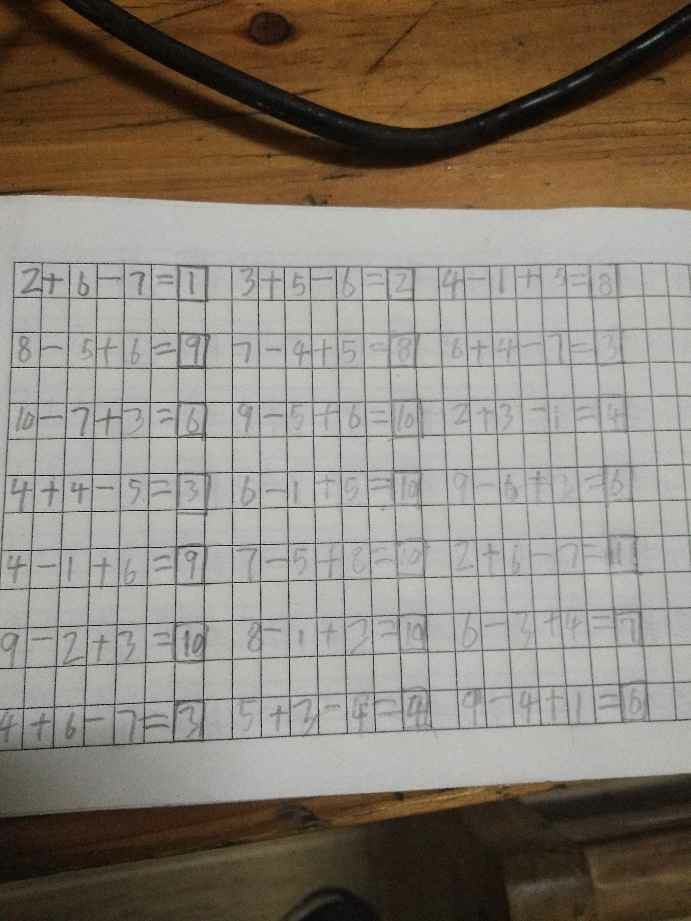 2+6-7=1 3+5-6=2 4-1+5=8
8-5+6=9 7-4+5=8 6+4-7=3
10-7+3=6 9-5+6=10 2+3-1=4
4+4-5=3 6-1+5=10 9-6+3=6
4-1+6=9 7-5+8=10 2+6-7=1
9-2+3=10 8-1+3=10 6-3+4=7
4+6-7=3 5+3-4=4 9-4+1=6